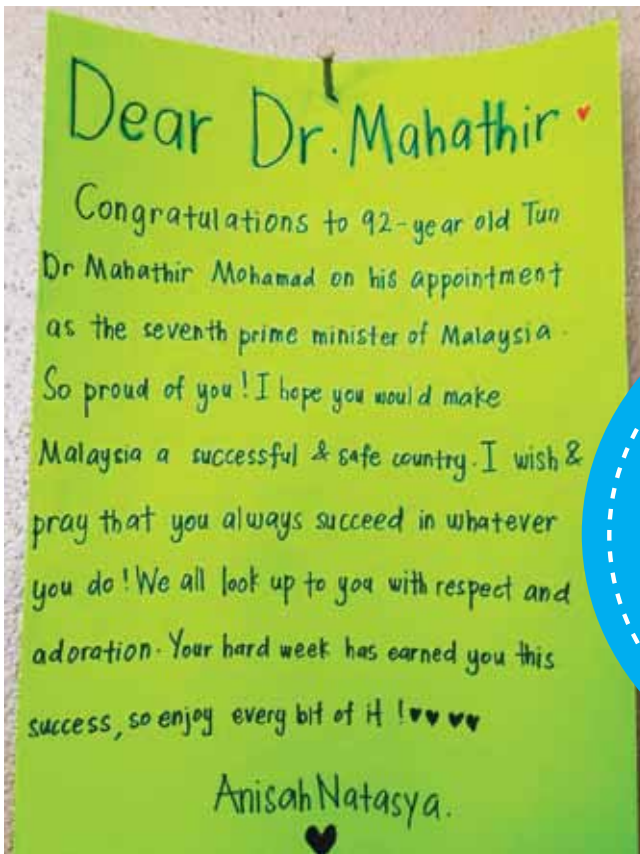 Dear Dr. Mahathir
Congratulations to 92-year old Tun
Dr Mahathir Mohamad on his appointment
as the seventh prime minister of Malaysia.
So proud of you! I hope you would make
Malaysia a successful & safe country. I wish &
pray that you always succeed in whatever
you do! We all look up to you with respect and
adoration. Your hard week has earned you this
success, so enjoy every bit of it! ♥♥ ♥♥
Anisah Natasya.